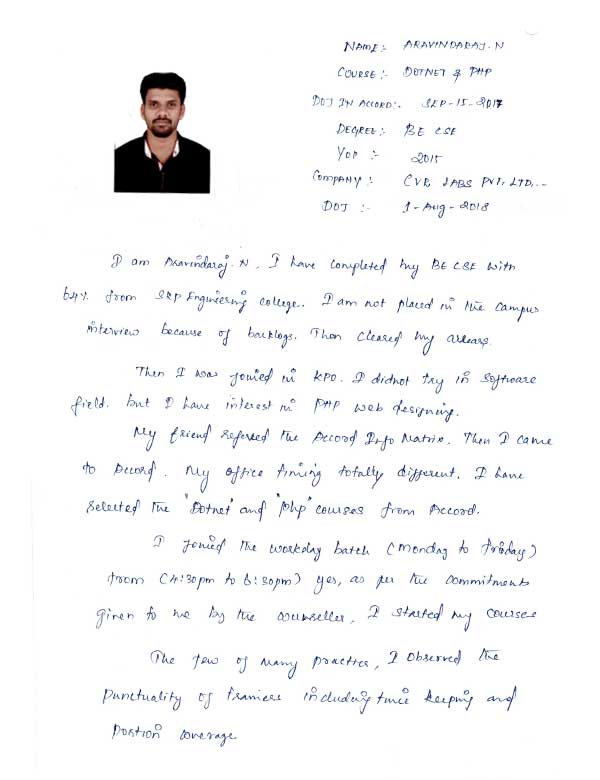 NAME:- ARAVINDARAJ.N
COURSE:- DOTNET & PHP
DOJ IN ACCORD:- SEP-15-2017
DEGREE:- BE CSE
YOP :- 2015
COMPANY :- CVR LABS PVT, LTD,..
DOJ :- 1-Aug-2018
I am Aravindaraj.N, I have completed my BE CSE with
64% from SKP Engineering college. I am not placed in the campus
interview because of backlogs. Then cleared my arrears.
Then I was joined in KPO. I didnot try in software
field. but I have interest in PHP web designing.
My friend referred the Accord Info Matrix. Then I came
to Accord. My office timing totally different. I have
selected the "Dotnet" and "php" courses from Accord.
I joined the workday batch (Monday to friday)
from (4:30pm to 6:30pm) yes, as per the commitments
given to me by the counseller, I started my courses
The few of many practice, I observed the
Punctuality of trainers including time keeping and
portion coverage